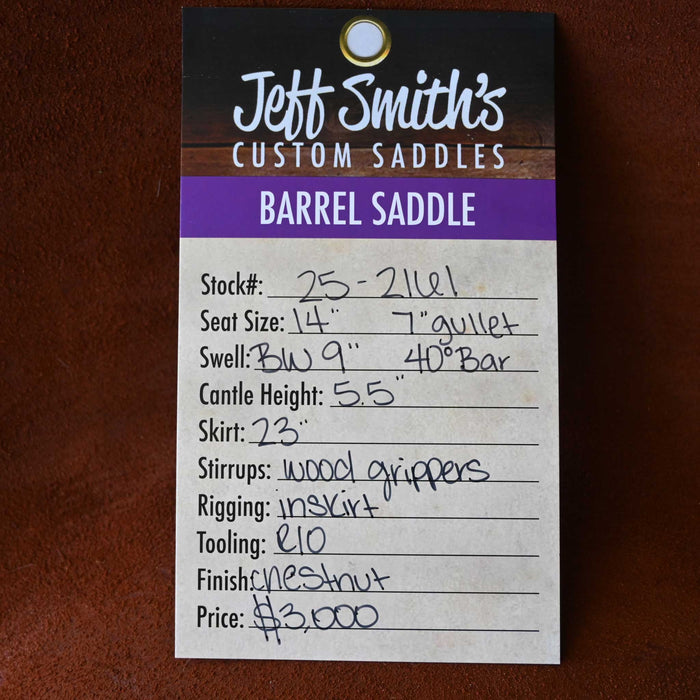 Jeff Smith's
CUSTOM SADDLES
BARREL SADDLE
Stock#: 25-2161
Seat Size: 14" 7" gullet
Swell: BW 9" 40° Bar
Cantle Height: 5.5"
Skirt: 23"
Stirrups: wood grippers
Rigging: inskirt
Tooling: R10
Finish: chestnut
Price: $3,000